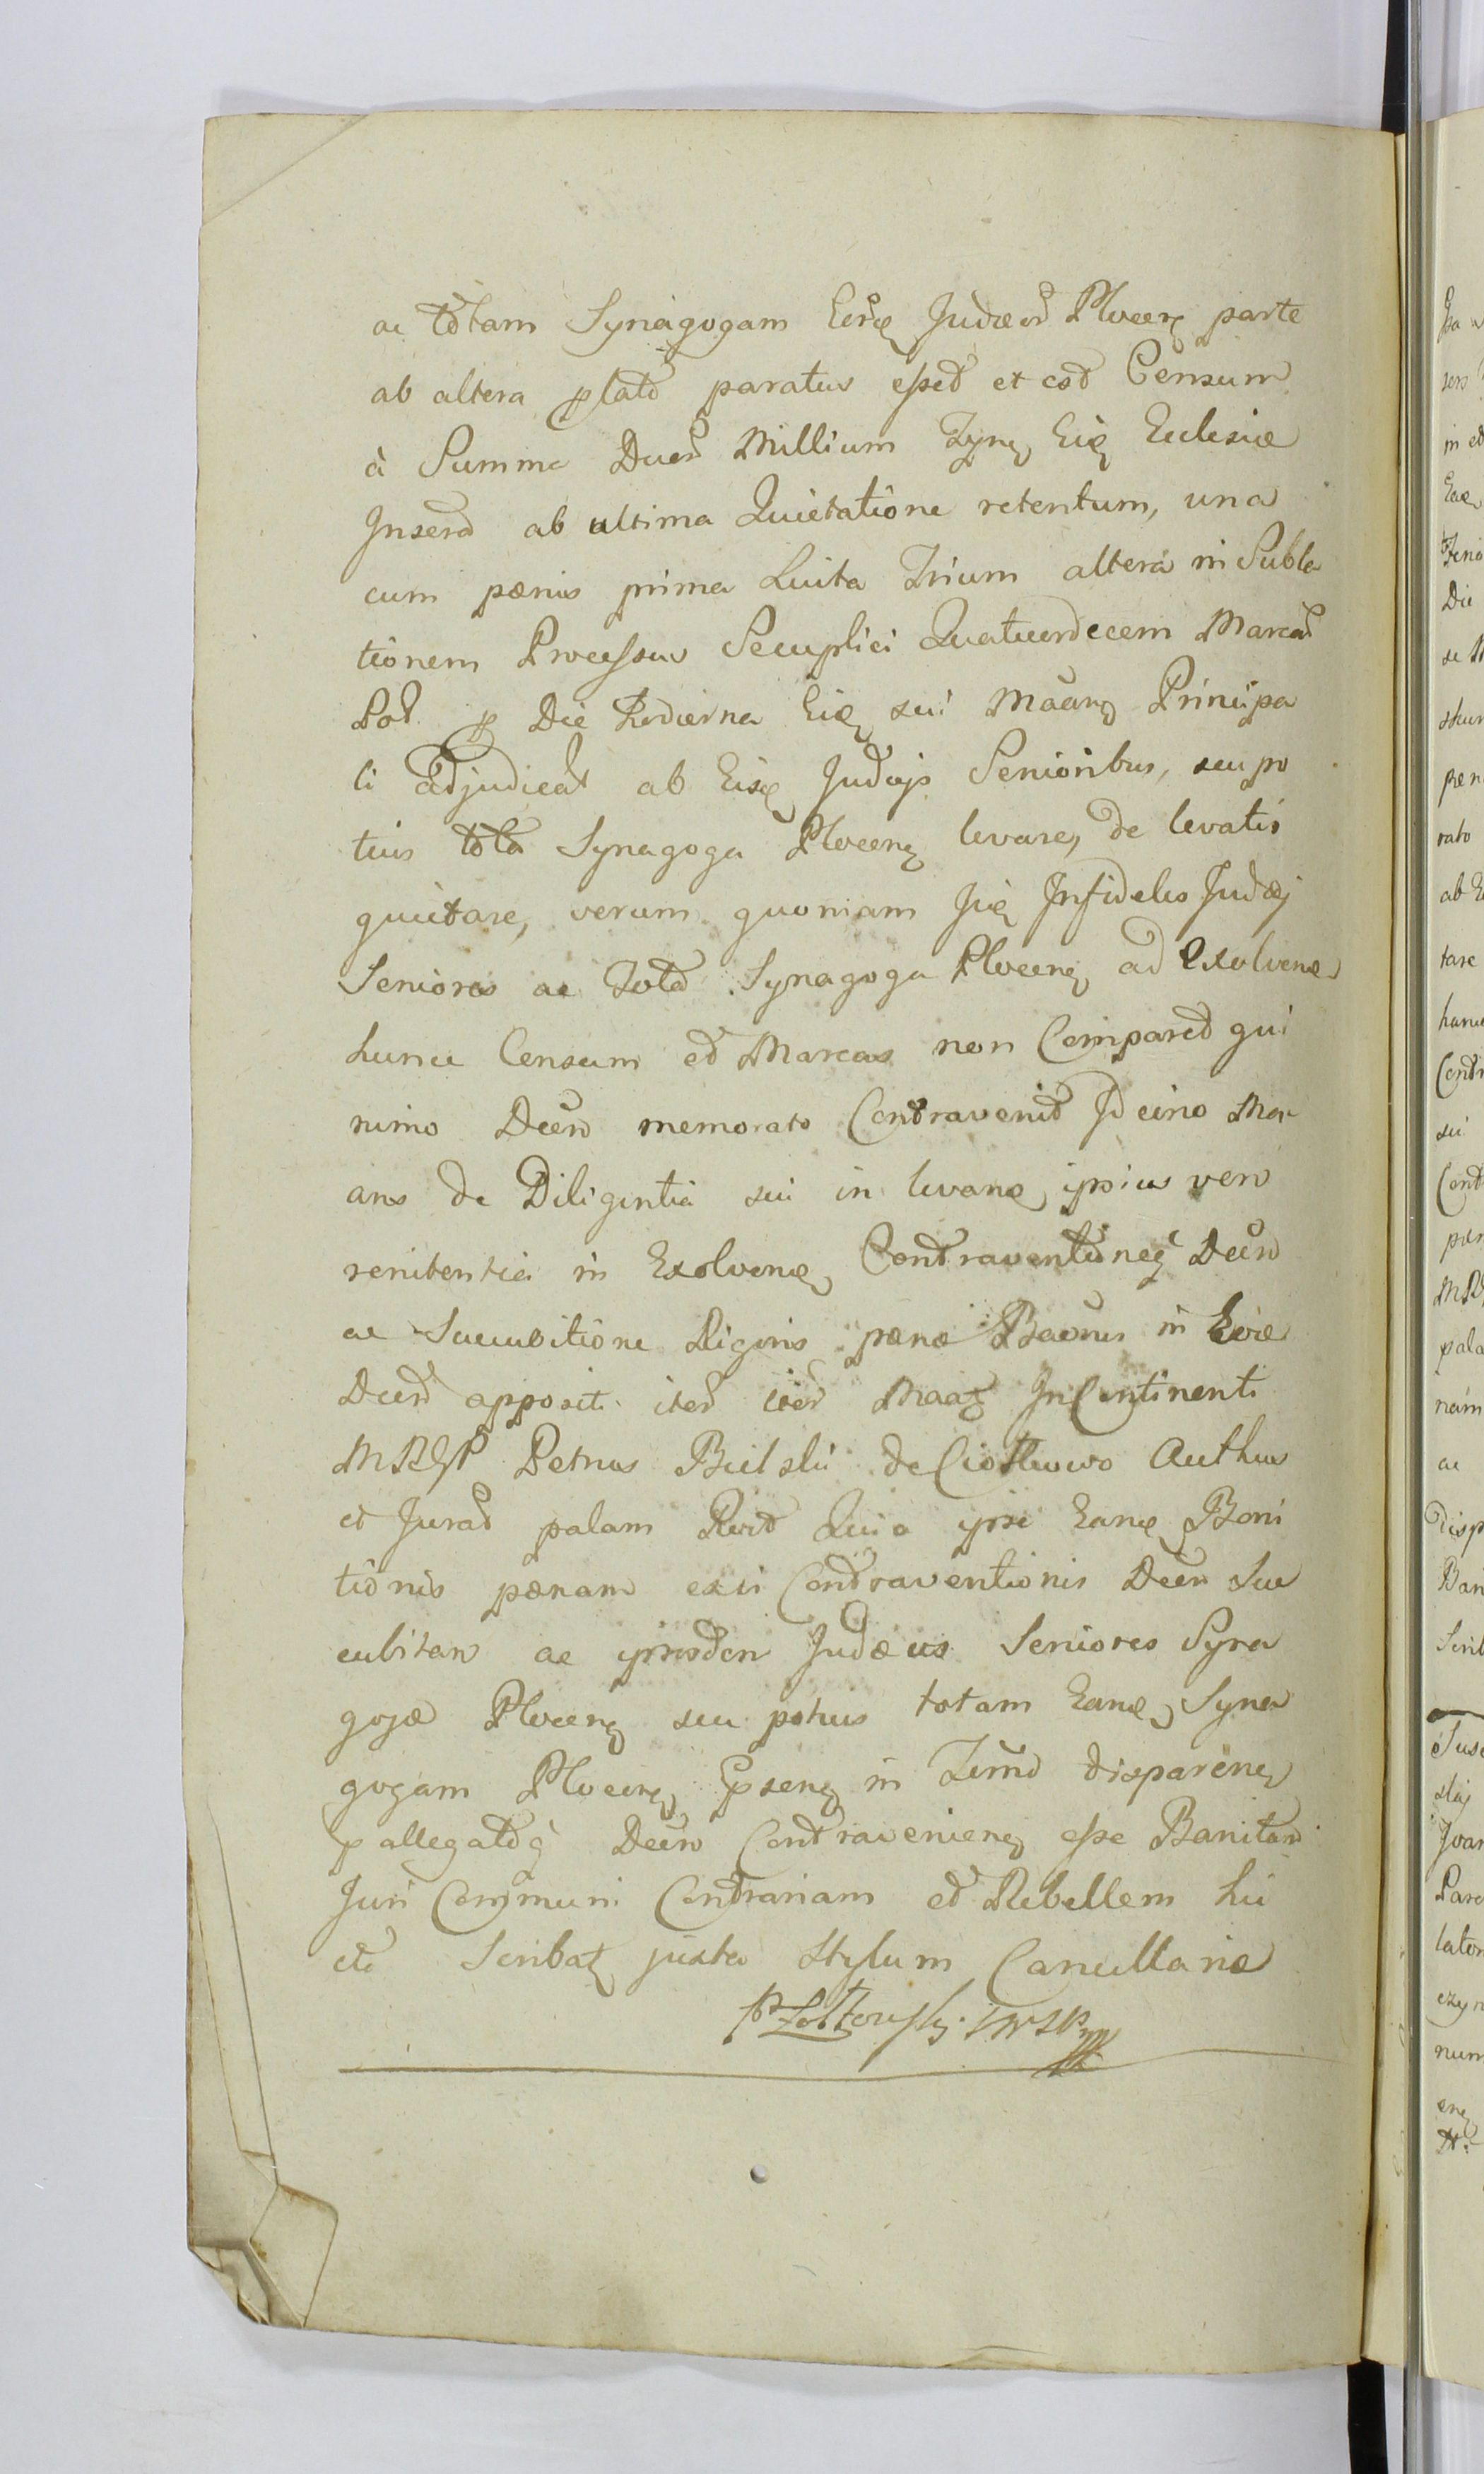 ac totam Synagogam Eorq Judæor Plocenq parte
ab altera plato paratus esset et est Censum
à Summa Duor Millium Tynq Eiq Eclesiæ
Inserd ab ultima Quietatione retentum, una
cum pænis prima Luita Trium altera in Subla
tionem Processus Secuplici Quatuordecem Marcar
Pol p Die Hodierna Eiq sui Principa
li adjudicat ab Eisq Judæjs Senioribus, seu po
tius tota Synagoga Plocenq levare, de levatis
quietare, verum quoniam Infideles Judæj
Seniores ac Tota Synagoga Plocenq ad Exolvenq
hunc Censum et Marcas non Compared qui
nimo Decro memorato Contravenit Id circo Mon
ans de Diligentia sui in levanq ipsius vero
renitentia in Exolvenq Contraventioneq Decro
ac Succubitione Rigoris pænæ Baonis in
Decro apposit. InContinenti
MRSP Petrus Bielski de Authus
et Jurad palam Rect Quia ipse Eanq Bani
tionis pænam exvi Contraventionis Decro Suc
cubitam ac Judæus Seniores Syna
gogæ Plocenq seu potius totam Eanq Syna
gogam Plocenq in Termo disparenq
p allegatoq Decro Contravenienq esse Banitam
Juri Communi Contrariam et Rebellem hic
etc Scribat juxta Stylum Cancellariæ